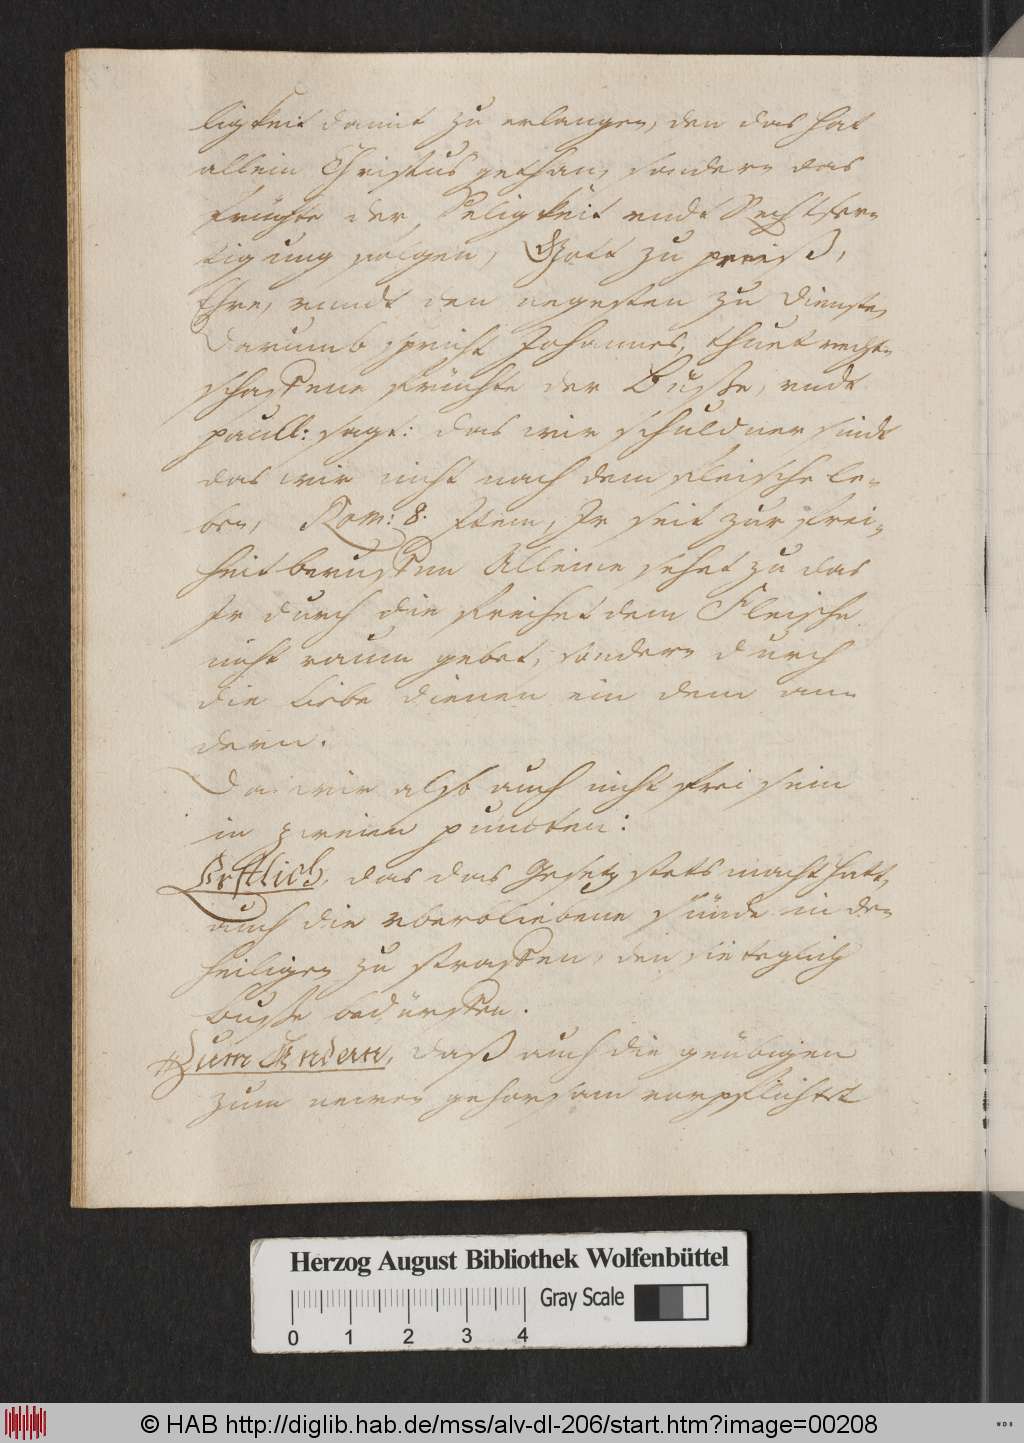 ligkeit damit zu erlangen, den das hat
allein Christus gethan, sondern das
früchte der Seligkeit undt Rechtfer-
tigung folgen, Gott zu preiß,
Ehre, unndt den negesten zu dienste,
Darumb spricht Johannes, thuet recht-
schaffene früchte der Busse, undt
paull: sagt: das wir schuldner sindt
das wir nicht nach dem fleische le-
ben, Rom: 8. Item, Ir seit zur frei-
heit beruffenn Alleine sehet zu das
Ir durch die freihet dem Fleische
nicht raum gebet, sondern durch
die liebe dienen ein dem an-
dern.
Da wir also auch nicht frei sein
in zweien puncten:
Erstlich, das das Gesetz stets macht hatt,
auch die uberbliebene sünde in den
heiligen zu straffen, den sie teglich
busse bedürffen.
Zum Andern, daß auch die gläubigen
zum neuen gehorsam verpflichtet
Herzog August Bibliothek Wolfenbüttel
Gray Scale
0 1 2 3 4
© HAB http://diglib.hab.de/mss/alv-dl-206/start.htm?image=00208